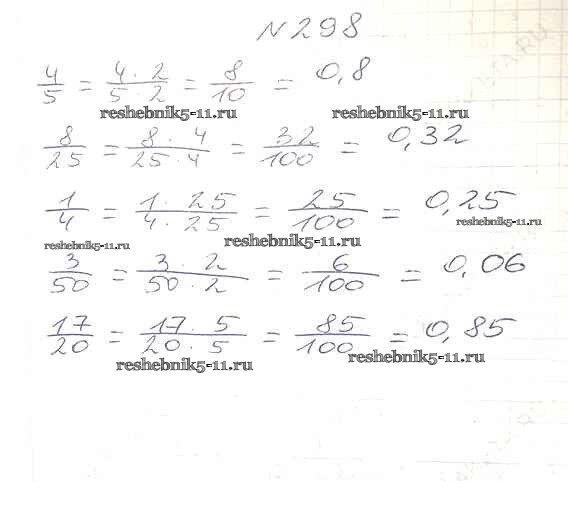 N298
4/5 = 4·2/5·2 = 8/10 = 0,8
reshebnik5-11.ru reshebnik5-11.ru
8/25 = 8·4/25·4 = 32/100 = 0,32
1/4 = 1·25/4·25 = 25/100 = 0,25
reshebnik5-11.ru reshebnik5-11.ru reshebnik5-11.ru
3/50 = 3·2/50·2 = 6/100 = 0,06
17/20 = 17·5/20·5 = 85/100 = 0,85
reshebnik5-11.ru reshebnik5-11.ru